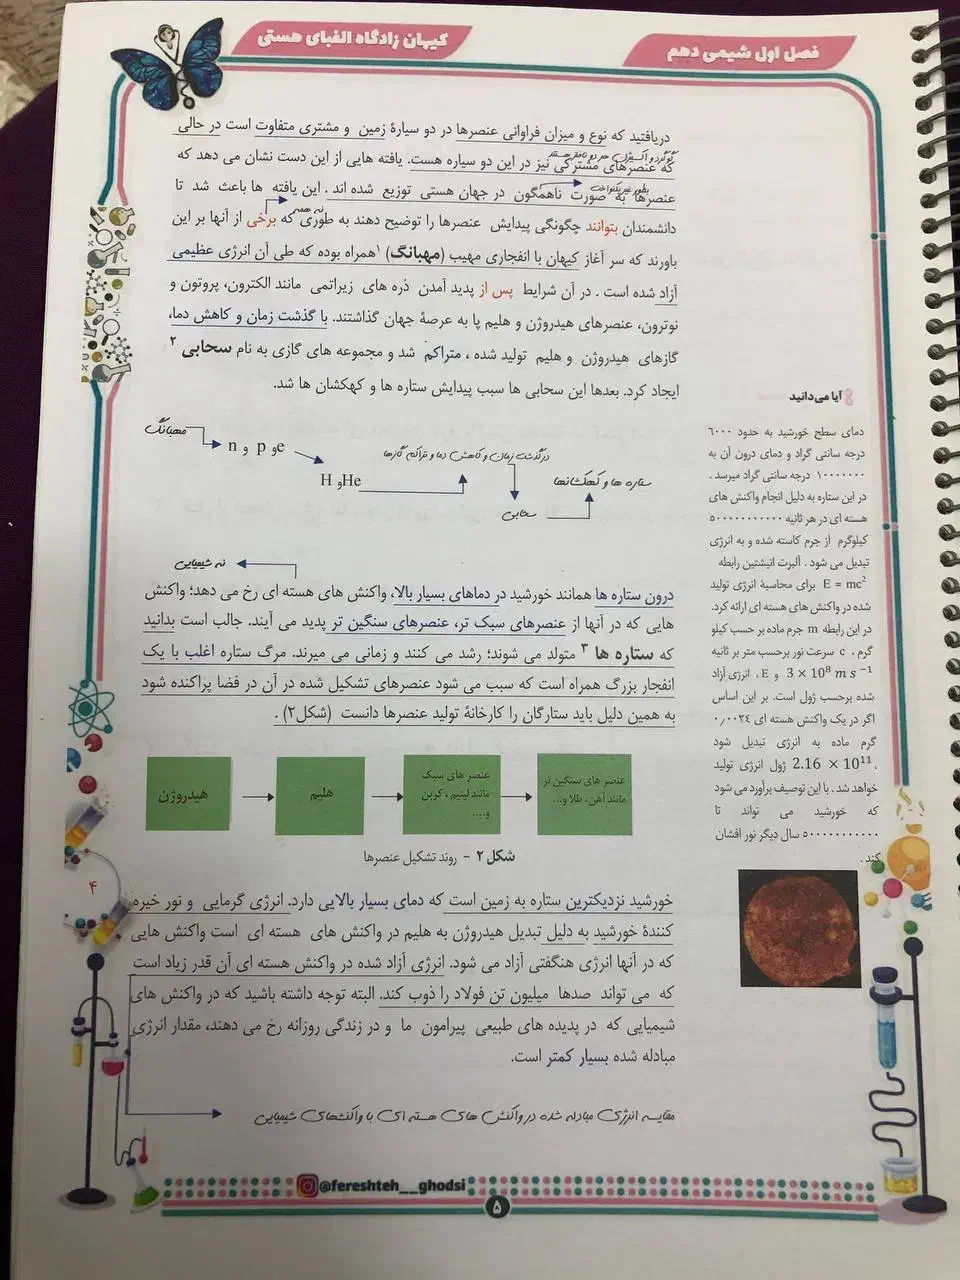 فصل اول شیمی دهم
کیهان زادگاه الفبای هستی
دریافتید که نوع و میزان فراوانی عنصرها در دو سیارهٔ زمین و مشتری متفاوت است در حالی
گوگرد و اکسیژن در دو
که عنصرهای مشترکی نیز در این دو سیاره هست. یافته هایی از این دست نشان می دهد که
بطور غیریکنواخت
عنصرها به صورت ناهمگون در جهان هستی توزیع شده اند . این یافته ها باعث شد تا
نه همه
دانشمندان بتوانند چگونگی پیدایش عنصرها را توضیح دهند به طوری که برخی از آنها بر این
باورند که سر آغاز کیهان با انفجاری مهیب (مهبانگ) ۱ همراه بوده که طی آن انرژی عظیمی
آزاد شده است . در آن شرایط پس از پدید آمدن ذره های زیراتمی مانند الکترون، پروتون و
نوترون، عنصرهای هیدروژن و هلیم پا به عرصهٔ جهان گذاشتند. با گذشت زمان و کاهش دما،
گازهای هیدروژن و هلیم تولید شده ، متراکم شد و مجموعه های گازی به نام سحابی ۲
ایجاد کرد. بعدها این سحابی ها سبب پیدایش ستاره ها و کهکشان ها شد.
مهبانگ
e و p و n
H و He
درگذشت زمان و کاهش دما و تراکم گازها
سحابی
ستاره ها و کهکشانها
نه شیمیایی
درون ستاره ها همانند خورشید در دماهای بسیار بالا، واکنش های هسته ای رخ می دهد؛ واکنش
هایی که در آنها از عنصرهای سبک تر، عنصرهای سنگین تر پدید می آیند. جالب است بدانید
که ستاره ها ۳ متولد می شوند؛ رشد می کنند و زمانی می میرند. مرگ ستاره اغلب با یک
انفجار بزرگ همراه است که سبب می شود عنصرهای تشکیل شده در آن در فضا پراکنده شود
به همین دلیل باید ستارگان را کارخانهٔ تولید عنصرها دانست (شکل۲) .
هیدروژن
هلیم
عنصر های سبک
مانند لیتیم ، کربن
و....
عنصر های سنگین تر
مانند آهن، طلا و...
شکل ۲ - روند تشکیل عنصرها
خورشید نزدیکترین ستاره به زمین است که دمای بسیار بالایی دارد. انرژی گرمایی و نور خیره
کنندهٔ خورشید به دلیل تبدیل هیدروژن به هلیم در واکنش های هسته ای است واکنش هایی
که در آنها انرژی هنگفتی آزاد می شود. انرژی آزاد شده در واکنش هسته ای آن قدر زیاد است
که می تواند صدها میلیون تن فولاد را ذوب کند. البته توجه داشته باشید که در واکنش های
شیمیایی که در پدیده های طبیعی پیرامون ما و در زندگی روزانه رخ می دهند، مقدار انرژی
مبادله شده بسیار کمتر است.
مقایسه انرژی مبادله شده در واکنش های هسته ای با واکنشهای شیمیایی
آیا می‌دانید
دمای سطح خورشید به حدود ۶۰۰۰
درجه سانتی گراد و دمای درون آن به
۱۰۰۰۰۰۰۰ درجه سانتی گراد میرسد .
در این ستاره به دلیل انجام واکنش های
هسته ای در هر ثانیه ۵۰۰۰۰۰۰۰۰۰
کیلوگرم از جرم کاسته شده و به انرژی
تبدیل می شود . آلبرت انیشتین رابطه
E = mc² برای محاسبهٔ انرژی تولید
شده در واکنش های هسته ای ارائه کرد.
در این رابطه m جرم ماده بر حسب کیلو
گرم ، c سرعت نور برحسب متر بر ثانیه
3 × 10⁸ m s⁻¹ و E ، انرژی آزاد
شده برحسب ژول است. بر این اساس
اگر در یک واکنش هسته ای ۰٫۰۰۲۴
گرم ماده به انرژی تبدیل شود
، 2.16 × 10¹¹ ژول انرژی تولید
خواهد شد . با این توصیف برآورد می شود
که خورشید می تواند تا
۵۰۰۰۰۰۰۰۰۰ سال دیگر نور افشان
کند .
۴
@fereshteh__ghodsi
۵